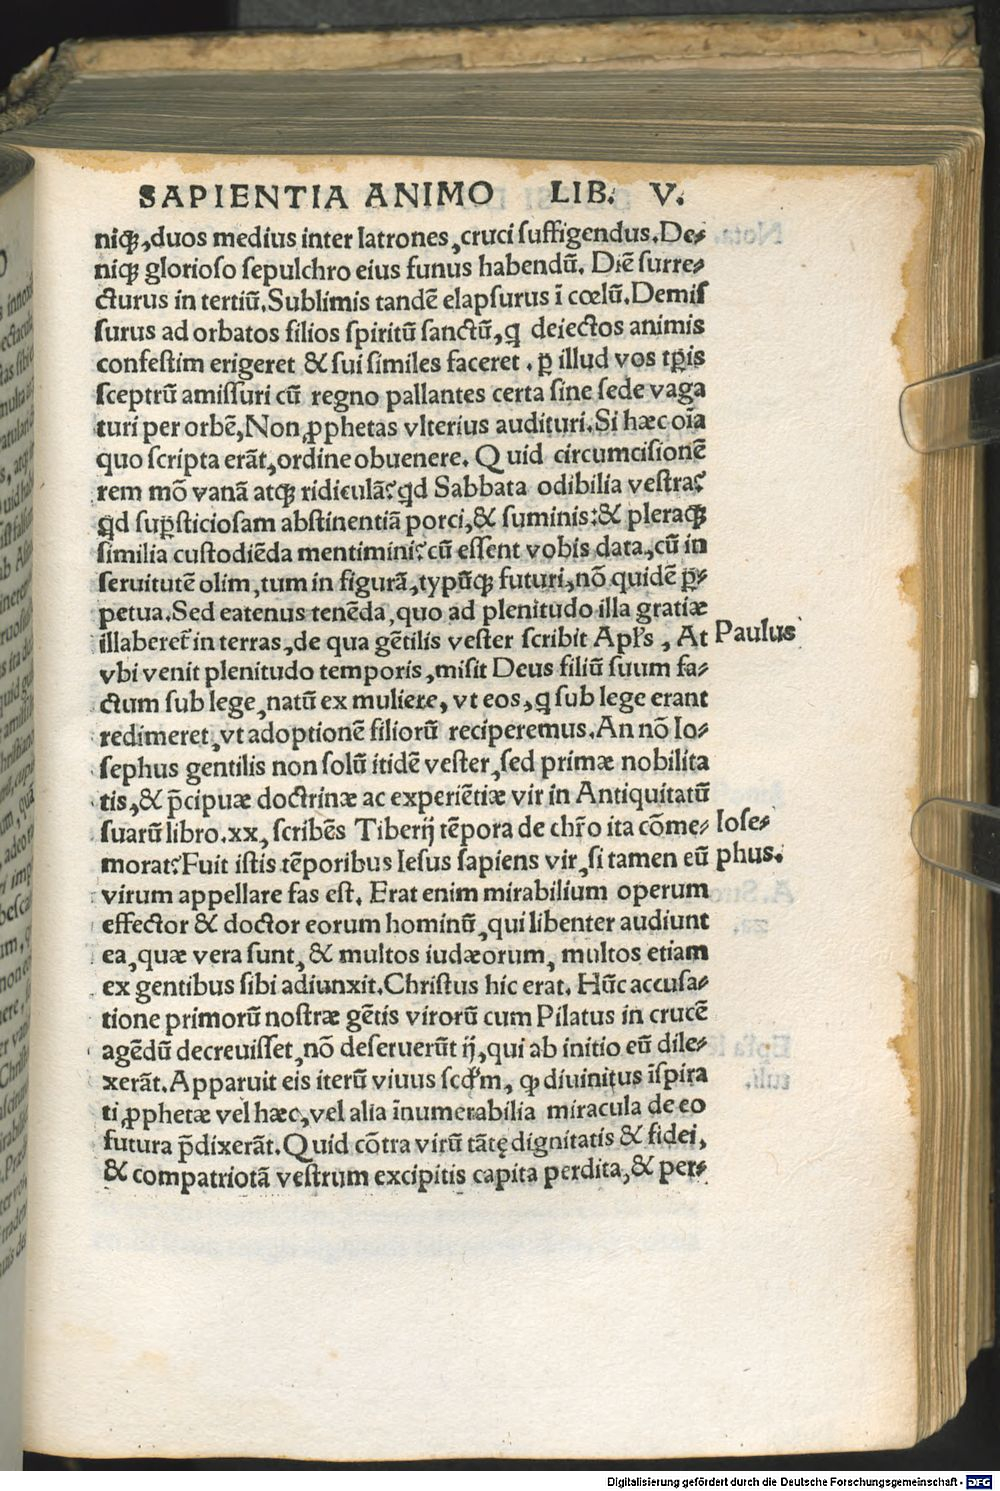 SAPIENTIA ANIMO LIB. V.
niqꝫ,duos medius inter latrones,cruci ſuffigendus.De⸗
niqꝫ glorioſo ſepulchro eius funus habendũ. Diẽ ſurre⸗
cturus in tertiũ.Sublimis tandẽ elapſurus ĩ cœlũ.Demiſ
ſurus ad orbatos filios ſpiritũ ſanctũ,ꝗ deiectos animis
confeſtim erigeret & ſui ſimiles faceret . ꝑ illud vos tꝑis
ſceptrũ amiſſuri cũ regno pallantes certa ſine ſede vaga
turi per orbẽ,Non ꝓphetas vlterius audituri.Si hæc oĩa
quo ſcripta erãt,ordine obuenere. Quid circumciſionẽ
rem mõ vanã atqꝫ ridiculã?ꝗd Sabbata odibilia veſtra?
ꝗd ſuꝑſticioſam abſtinentiã porci,& ſuminis:& pleraqꝫ
ſimilia cuſtodiẽda mentimini?cũ eſſent vobis data,cũ in
ſeruitutẽ olim,tum in figurã,typũqꝫ futuri,nõ quidẽ ꝑ⸗
petua.Sed eatenus tenẽda,quo ad plenitudo illa gratiæ
illaberet᷑ in terras,de qua gẽtilis veſter ſcribit Apl̃s , At
Paulus
vbi venit plenitudo temporis,miſit Deus filiũ ſuum fa⸗
ctum ſub lege,natũ ex muliere, vt eos,ꝗ ſub lege erant
redimeret,vt adoptionẽ filiorũ reciperemus.An nõ Io⸗
ſephus gentilis non ſolũ itidẽ veſter,ſed primæ nobilita
tis,& p̃cipuæ doctrinæ ac experiẽtiæ vir in Antiquitatũ
ſuarũ libro.xx, ſcribẽs Tiberij tẽpora de chr̃o ita cõme⸗
Ioſe⸗
morat?Fuit iſtis tẽporibus Ieſus ſapiens vir,ſi tamen eũ
phus.
virum appellare fas eſt. Erat enim mirabilium operum
effector & doctor eorum hominũ,qui libenter audiunt
ea,quæ vera ſunt, & multos iudæorum, multos etiam
ex gentibus ſibi adiunxit.Chriſtus hic erat. Hũc accuſa⸗
tione primorũ noſtræ gẽtis virorũ cum Pilatus in crucẽ
agẽdũ decreuiſſet,nõ deſeruerũt ij,qui ab initio eũ dile⸗
xerãt.Apparuit eis iterũ viuus ſcd̃m, ꝙ diuinitus ĩſpira
ti ꝓphetæ vel hæc,vel alia ĩnumerabilia miracula de eo
futura p̃dixerãt.Quid cõtra virũ tãtę dignitatis & fidei,
& compatriotã veſtrum excipitis capita perdita,& per⸗
Digitalisierung gefördert durch die Deutsche Forschungsgemeinschaft - DFG